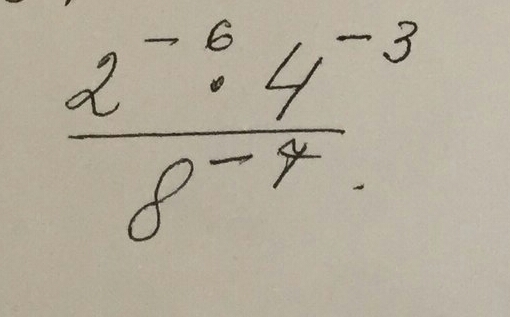 2^{-6} · 4^{-3}
8^{-7} .